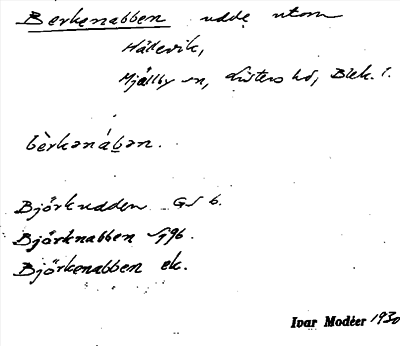 Berkenabben udde utom
Hälevik,
Mjällby sn, Listers hd, Blek. l.
bèrkǝnábǝn.
Björkudden GS 6.
Björknabben
Björkenabben ek.
Ivar Modéer 1930